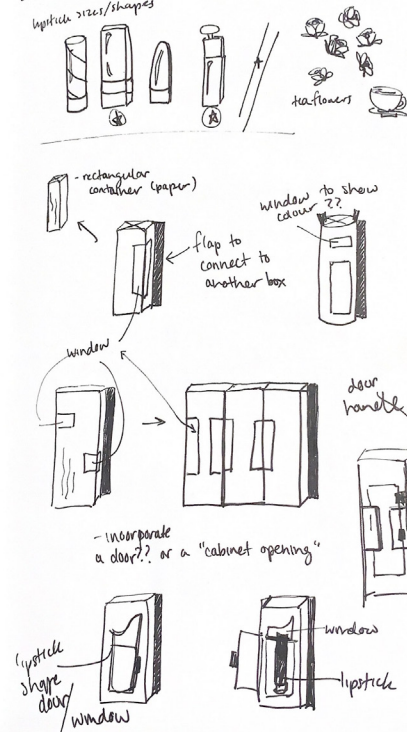 lipstick sizes/shapes
teaflowers
- rectangular
container (paper)
window to show
colour ??
flap to
connect to
another box
window
door
handle
- incorporate
a door?? or a "cabinet opening"
lipstick
shape
door/
window
window
lipstick